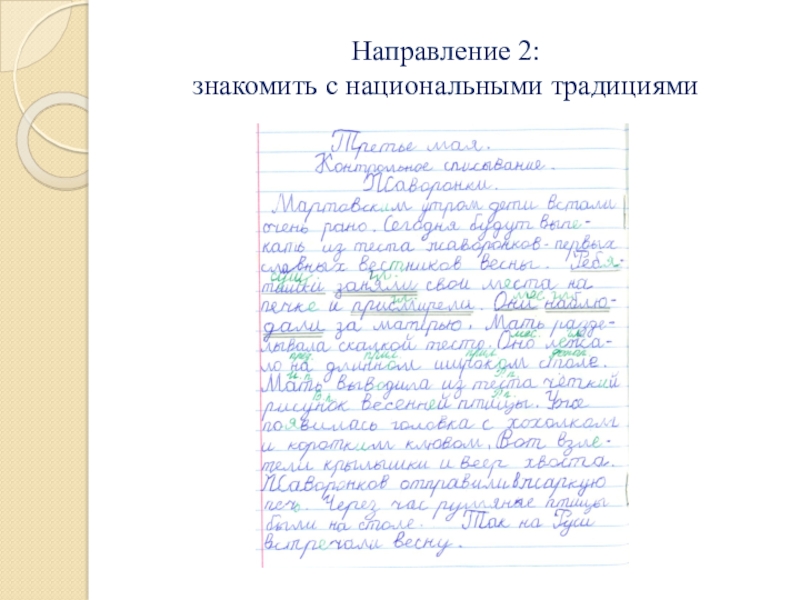 Направление 2:
знакомить с национальными традициями
Третье мая.
Контрольное списывание.
Жаворонки.
Мартовским утром дети встали
очень рано. Сегодня будут выпе-
кать из теста жаворонков - первых
славных вестников весны. Ребя-
сущ. гл.
тишки заняли свои места на
гл. мес. гл.
печке и присмирели. Они наблю-
дали за матерью. Мать разде-
мес.
лывала скалкой тесто. Оно лежа-
пред. прил. прил.
ло на длинном широком столе.
И.п. Р.п.
Мать выводила из теста чёткий
В.п. Р.п.
рисунок весенней птицы. Уже
появилась головка с хохолком
и коротким клювом. Вот взле-
тели крылышки и веер хвоста.
Жаворонков отправили в жаркую
печь. Через час румяные птицы
были на столе. Так на Руси
встречали весну.